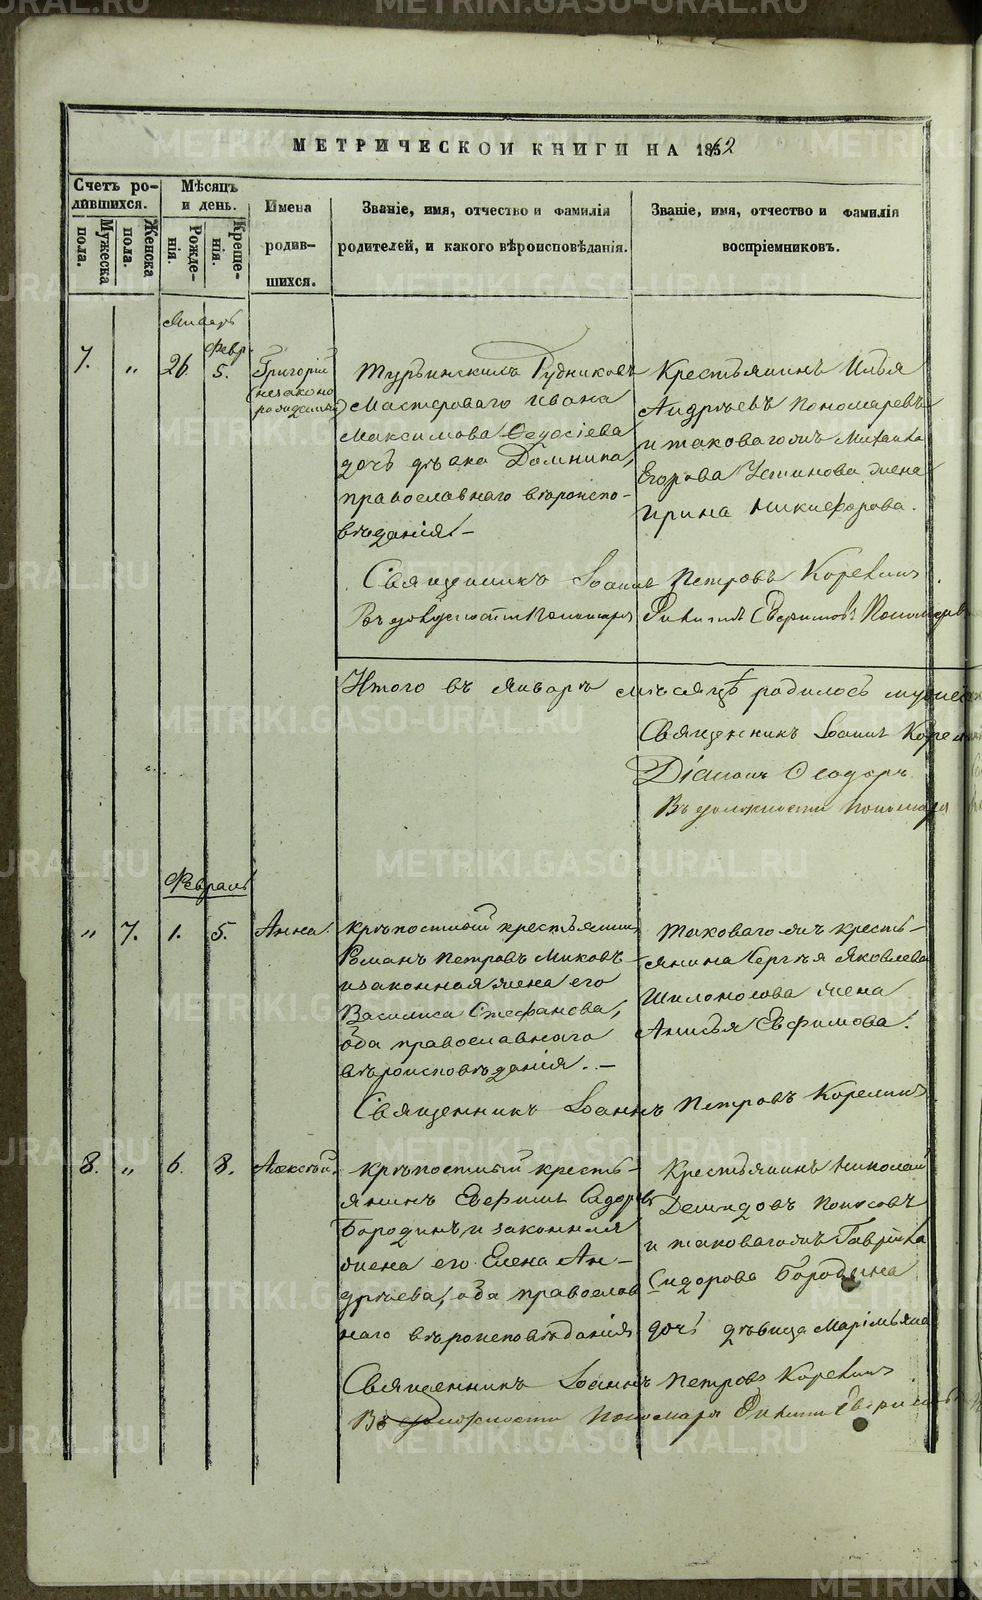 МЕТРИЧЕСКОЙ КНИГИ НА 1862
Счетъ родившихся.
Мужеска пола.
Женска пола.
Мѣсяцъ и день.
Рожденія.
Крещенія.
Имена родившихся.
Званіе, имя, отчество и фамилія родителей, и какого вѣроисповѣданія.
Званіе, имя, отчество и фамилія воспріемниковъ.
Январь
7. „ 26 Февр. 5.
Григорій
(незаконорожденный)
Турьинскихъ Рудниковъ
Мастероваго Ивана
Максимова Ѳедосіева
дочь дѣвка Домника,
православнаго вѣроиспо-
вѣданія.
Крестьянинъ Илья
Андрѣевъ Пономаревъ
и таковагожъ Михаила
Егорова Устинова жена
Ирина Никифорова.
Священникъ Іоаннъ Петровъ Корелинъ
Въ должности Пономаря
Итого въ январѣ мѣсяцѣ родилось
Священникъ Іоаннъ
Діаконъ Ѳеодоръ
Въ должности Пономаря
Февраль
„ 7. 1. 5. Анна.
Крѣпостный крестьянинъ
Романъ Петровъ Миковъ
и законная жена его
Василиса Стефанова,
оба православнаго
вѣроисповѣданія.
Таковагожъ кресть-
янина Сергѣя Яковлева
Шилоносова жена
Анисья Евфимова.
Священникъ Іоаннъ Петровъ Корелинъ
8. „ 6. 8. Алексѣй.
Крѣпостный кресть-
янинъ Евфимъ Сидоровъ
Бородинъ и законная
жена его Елена Ан-
дрѣева, оба православ
наго вѣроисповѣданія
Крестьянинъ Николай
Демидовъ
и таковагожъ Гавріила
Сидорова Бородина
дочь дѣвица Маріміяна
Священникъ Іоаннъ Петровъ Корелинъ
Въ должности Пономаря
METRIKI.GASO-URAL.RU